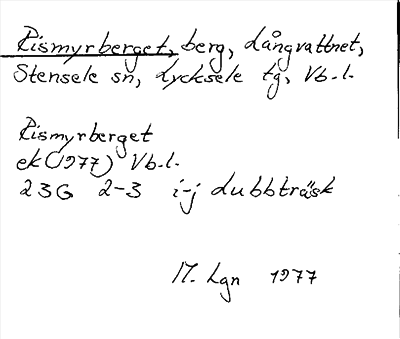 Rismyrberget, berg, Långvattnet,
Stensele sn, Lycksele tg, Vb.l.
Rismyrberget
ek (1977) Vb.l.
23G 2-3 i-j Lubbträsk
M. Lgn 1977